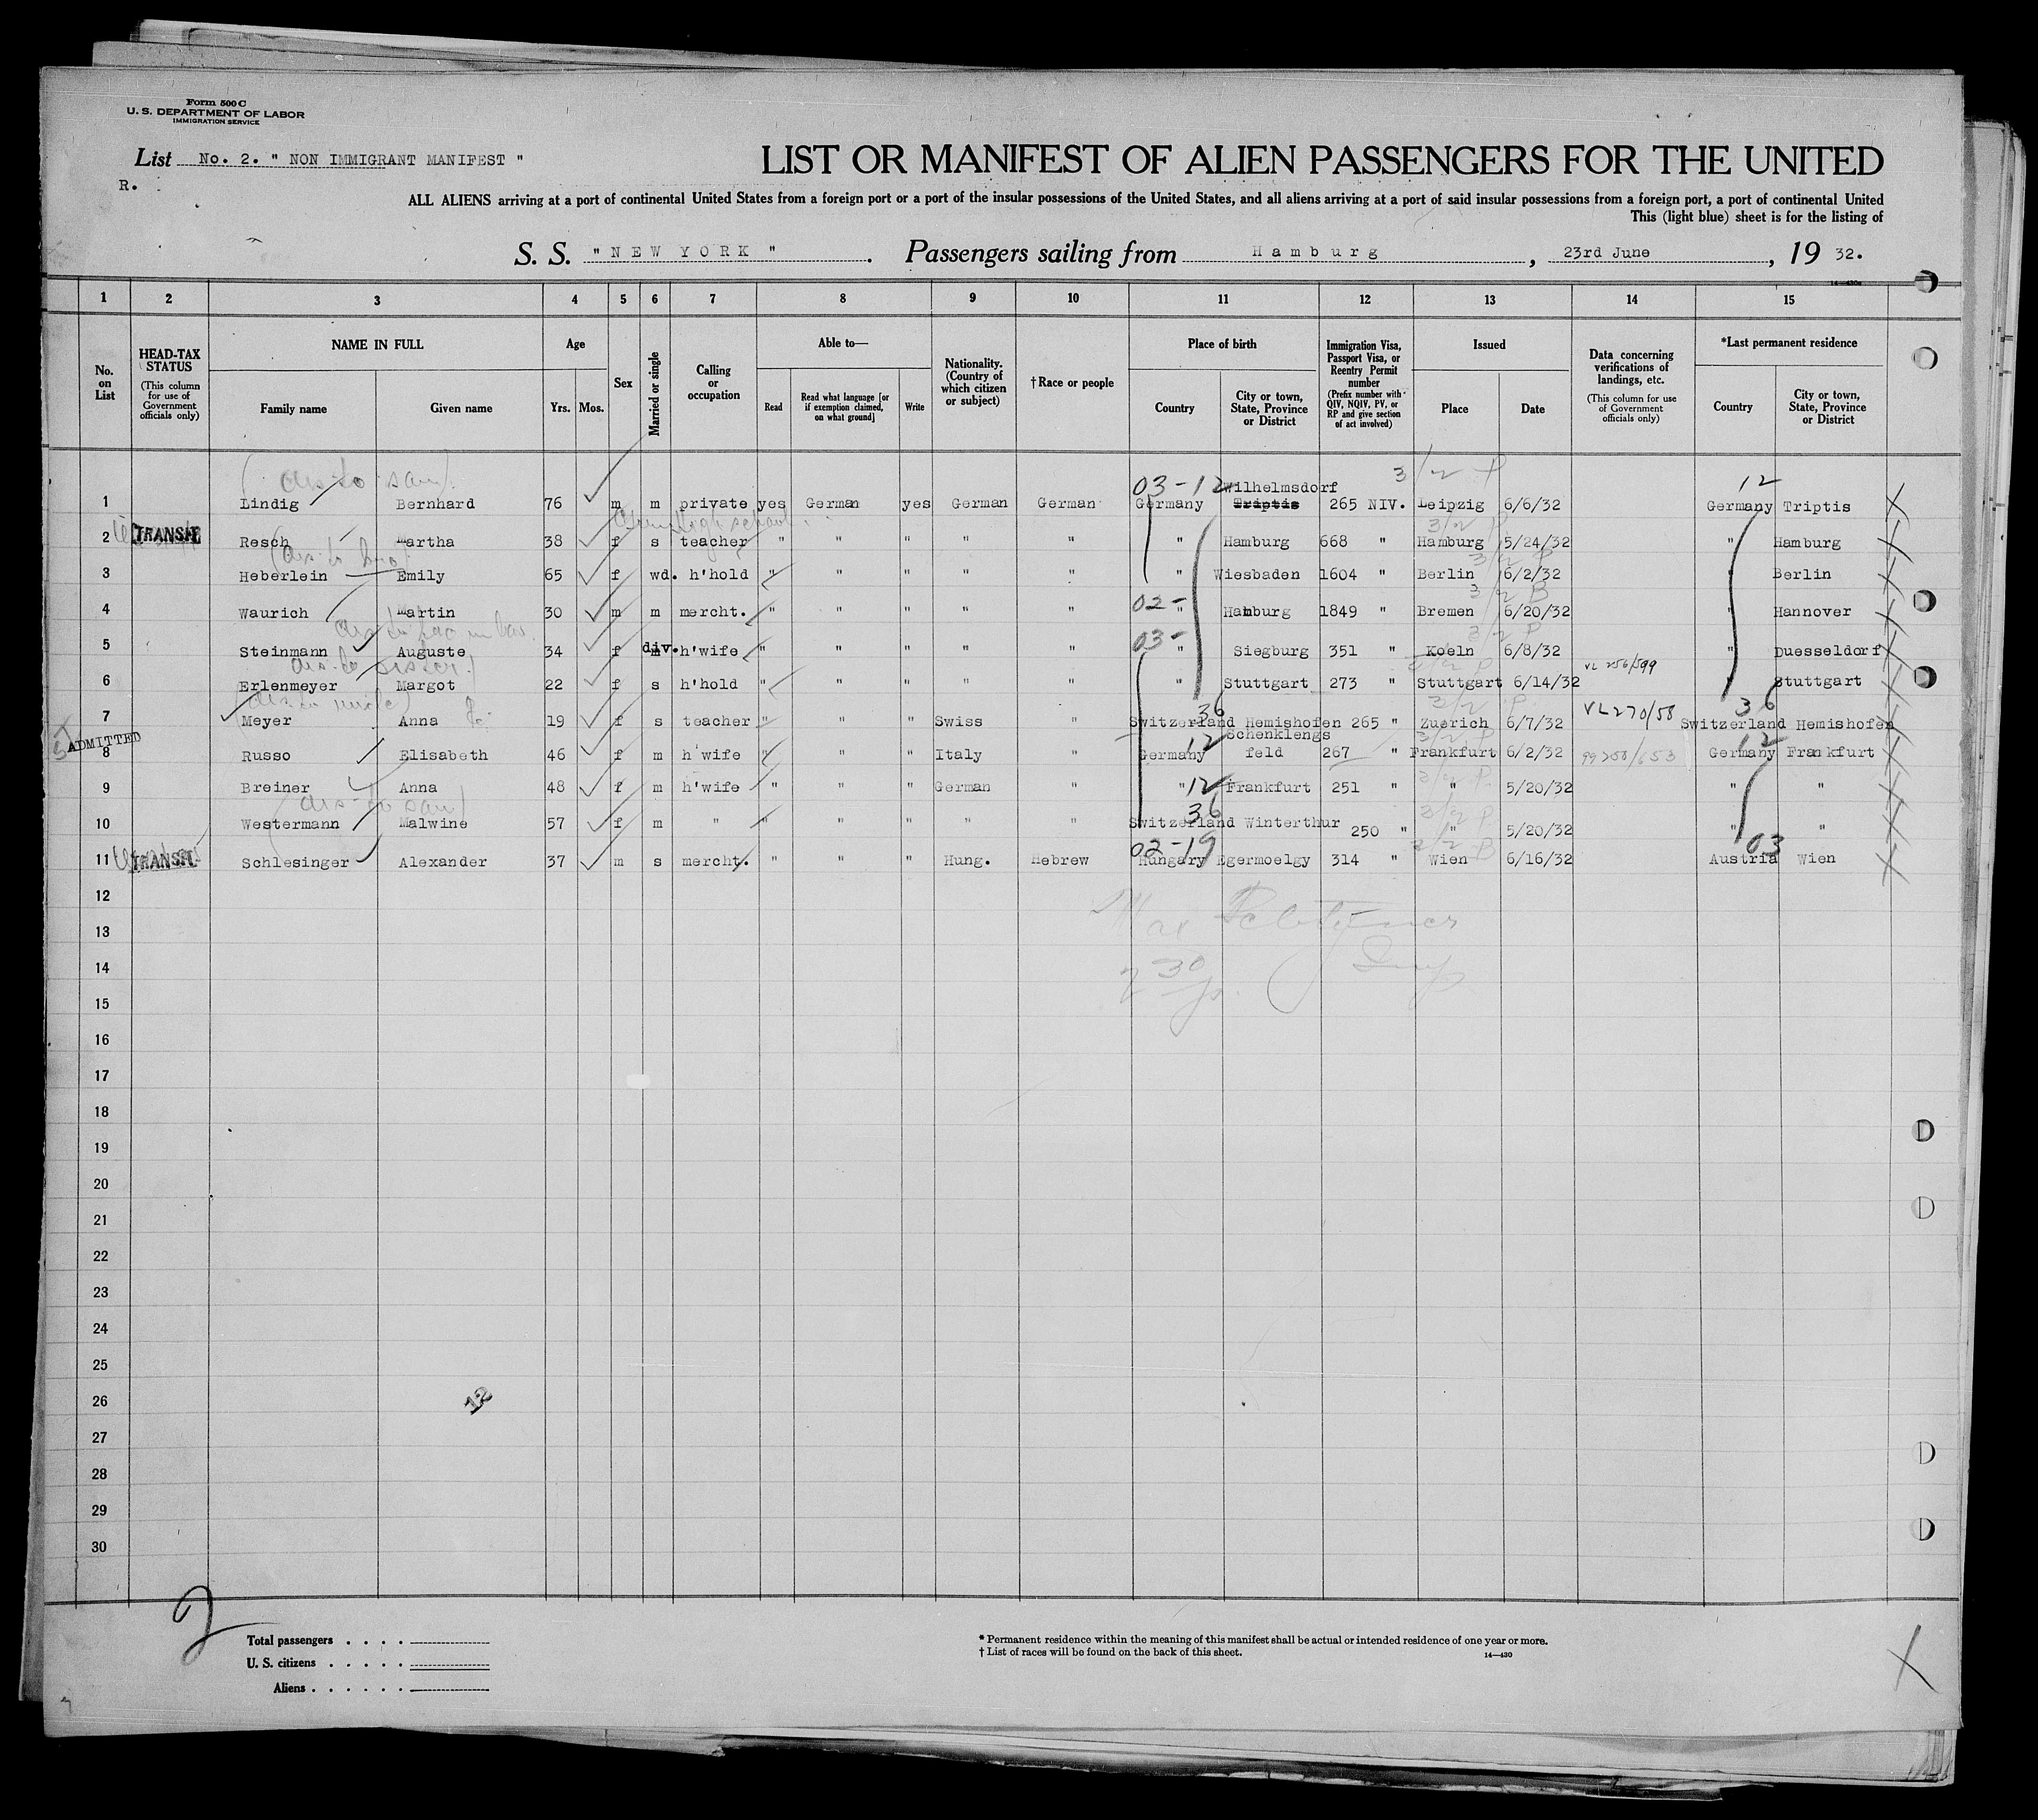 Form 500 C
U. S. DEPARTMENT OF LABOR
IMMIGRATION SERVICE
List No. 2. " NON IMMIGRANT MANIFEST "
R.
LIST OR MANIFEST OF ALIEN PASSENGERS FOR THE UNITED
ALL ALIENS arriving at a port of continental United States from a foreign port or a port of the insular possessions of the United States, and all aliens arriving at a port of said insular possessions from a foreign port, a port of continental United
This (light blue) sheet is for the listing of
S. S. " N E W  Y O R K " . Passengers sailing from H a m b u r g , 23rd June , 19 32.
14—430a
1 2 3 4 5 6 7 8 9 10 11 12 13 14 15
No. on List
HEAD-TAX STATUS (This column for use of Government officials only)
NAME IN FULL
Family name Given name
Age
Yrs. Mos.
Sex
Married or single
Calling or occupation
Able to—
Read Read what language [or if exemption claimed, on what ground] Write
Nationality. (Country of which citizen or subject)
† Race or people
Place of birth
Country City or town, State, Province or District
Immigration Visa, Passport Visa, or Reentry Permit number (Prefix number with QIV, NQIV, PV, or RP and give section of act involved)
Issued
Place Date
Data concerning verifications of landings, etc. (This column for use of Government officials only)
*Last permanent residence
Country City or town, State, Province or District
03-12 Wilhelmsdorf 12
1 Lindig Bernhard 76 m m private yes German yes German German Germany Triptis 265 NIV. Leipzig 6/6/32 Germany Triptis
2 TRANSIT Resch Martha 38 f s teacher " " " " " " Hamburg 668 " Hamburg 5/24/32 " Hamburg
3 Heberlein Emily 65 f wd. h'hold " " " " " " Wiesbaden 1604 " Berlin 6/2/32 " Berlin
02-
4 Waurich Martin 30 m m mercht. " " " " " " Hamburg 1849 " Bremen 6/20/32 " Hannover
03-
5 Steinmann Auguste 34 f div. h'wife " " " " " " Siegburg 351 " Koeln 6/8/32 " Duesseldorf
VL 256/599
6 Erlenmeyer Margot 22 f s h'hold " " " " " " Stuttgart 273 " Stuttgart 6/14/32 " Stuttgart
36 VL270/58 36
7 Meyer Anna 19 f s teacher " " " Swiss " Switzerland Hemishofen 265 " Zuerich 6/7/32 Switzerland Hemishofen
ADMITTED
12 Schenklengs 12
8 Russo Elisabeth 46 f m h'wife " " " Italy " Germany feld 267 " Frankfurt 6/2/32 Germany Frankfurt
9 Breiner Anna 48 f m h'wife " " " German " " 12 Frankfurt 251 " " 5/20/32 " "
36
10 Westermann Malwine 57 f m " " " " " " Switzerland Winterthur 250 " " 5/20/32 " "
02-19 03
11 TRANSIT Schlesinger Alexander 37 m s mercht. " " " Hung. Hebrew Hungary Egermoelgy 314 " Wien 6/16/32 Austria Wien
12
13
14
15
16
17
18
19
20
21
22
23
24
25
26
12
27
28
29
30
2
Total passengers . . . .
U. S. citizens . . . . .
Aliens . . . . . .
* Permanent residence within the meaning of this manifest shall be actual or intended residence of one year or more.
† List of races will be found on the back of this sheet.
14—430